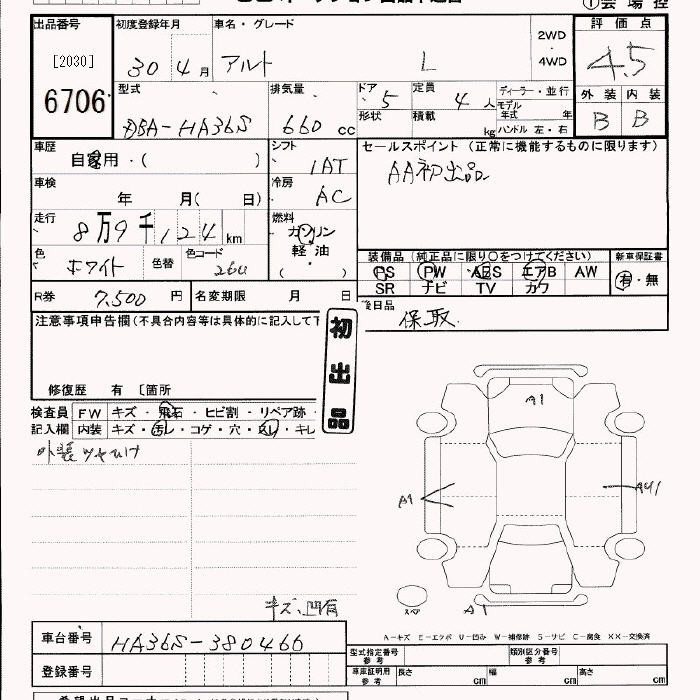 出品番号 初度登録年月 車名・グレード 評価点
[2030] 30年4月 アルト L 2WD 4WD 4.5
6706 型式 排気量 ドア 定員 ディーラー・並行 外装 内装
DBA-HA36S 660cc 5 4人 モデル年式 年 B B
形状 積載 kg ハンドル 左・右
車歴 シフト セールスポイント(正常に機能するものに限ります)
自家用・( ) IAT AA初出品
車検 年 月( 日) 冷房 AC
走行 8万9千124km 燃料 ガソリン
軽油
( )
色 ホワイト 色替 色コード 26U
装備品(純正品に限り○をつけてください) 新車保証書
PS PW ABS エアB AW 有・無
SR ナビ TV カワ
R券 7,500円 名変期限 月 日 後日品 保取
注意事項申告欄(不具合内容等は具体的に記入して下
初出品
修復歴 有 〔箇所
検査員 FW キズ・飛石・ヒビ割・リペア跡・
記入欄 内装 キズ・汚レ・コゲ・穴・スレ・キレ
外装ツヤひけ
A1
A1
AU1
キズ、凹有
スペア
A1
A-キズ E-エクボ U-凹み W-補修跡 S-サビ C-腐食 XX-交換済
車台番号 HA36S-380466 型式指定番号 参考 類別区分番号 参考
登録番号 車庫証明用 参考 長さ cm 幅 cm 高さ cm